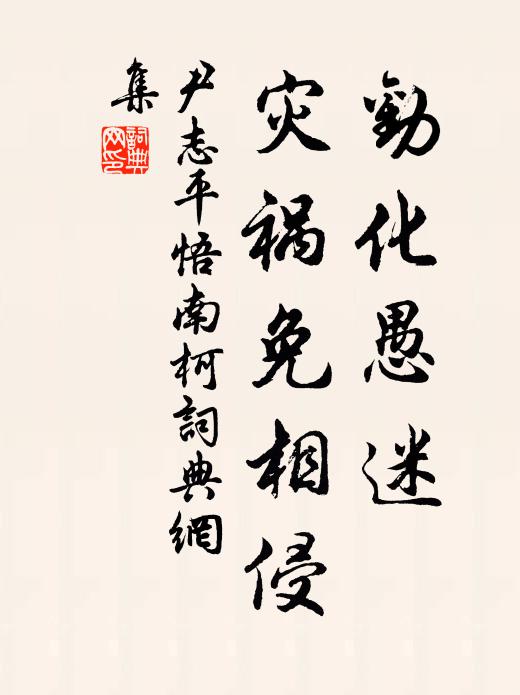 勸化愚迷
灾祸免相侵
尹志平悟南柯詞典網
集
詞典網印